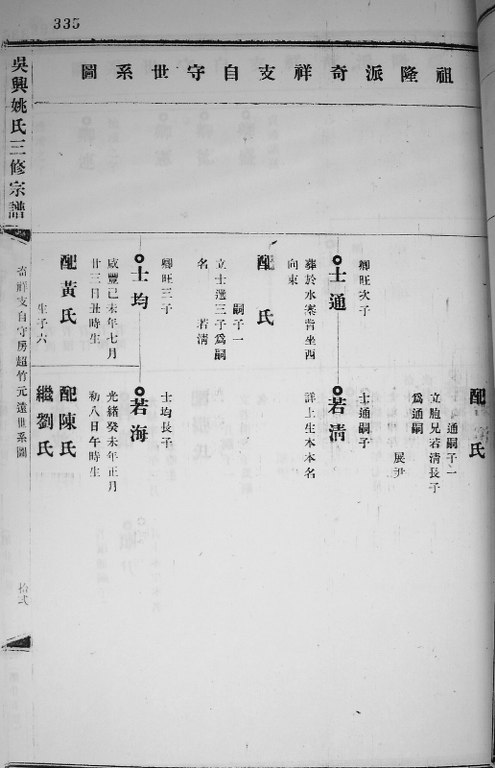 335
祖隆派奇祥支自守世系圖
吳興姚氏三修宗譜
配 氏
通嗣子一
立胞兄若清長子
為通嗣
展尹
卿旺次子
士通
葬於水寨背坐西
向東
配 氏
嗣子一
立士選三子為嗣
名 若清
卿旺三子
士均
咸豐己未年七月
廿三日丑時生
配黃氏
生子六
士通嗣子
若清
詳上生本本名
士均長子
若海
光緒癸未年正月
初八日午時生
配陳氏
繼劉氏
奇祥支自守房超竹元遠世系圖
拾弍